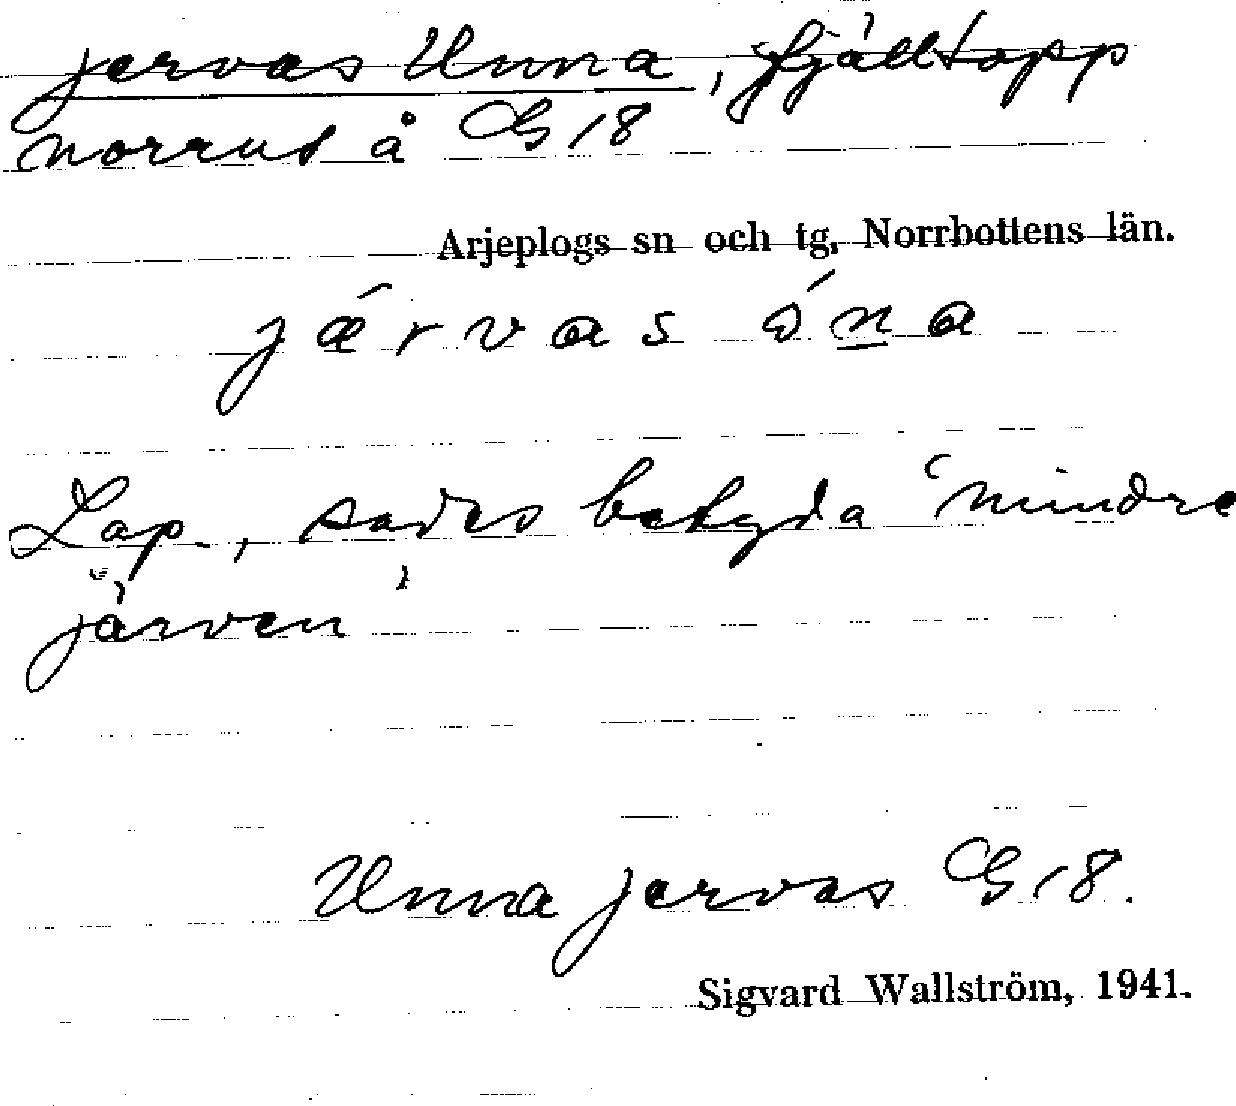 jervas Unna, fjälltopp
norrut å G 18
Arjeplogs sn och tg. Norrbottens län.
jǽrvas óna
Lap., sades betyda 'mindre
järven'
Unna jervas G 18.
Sigvard Wallström, 1941.